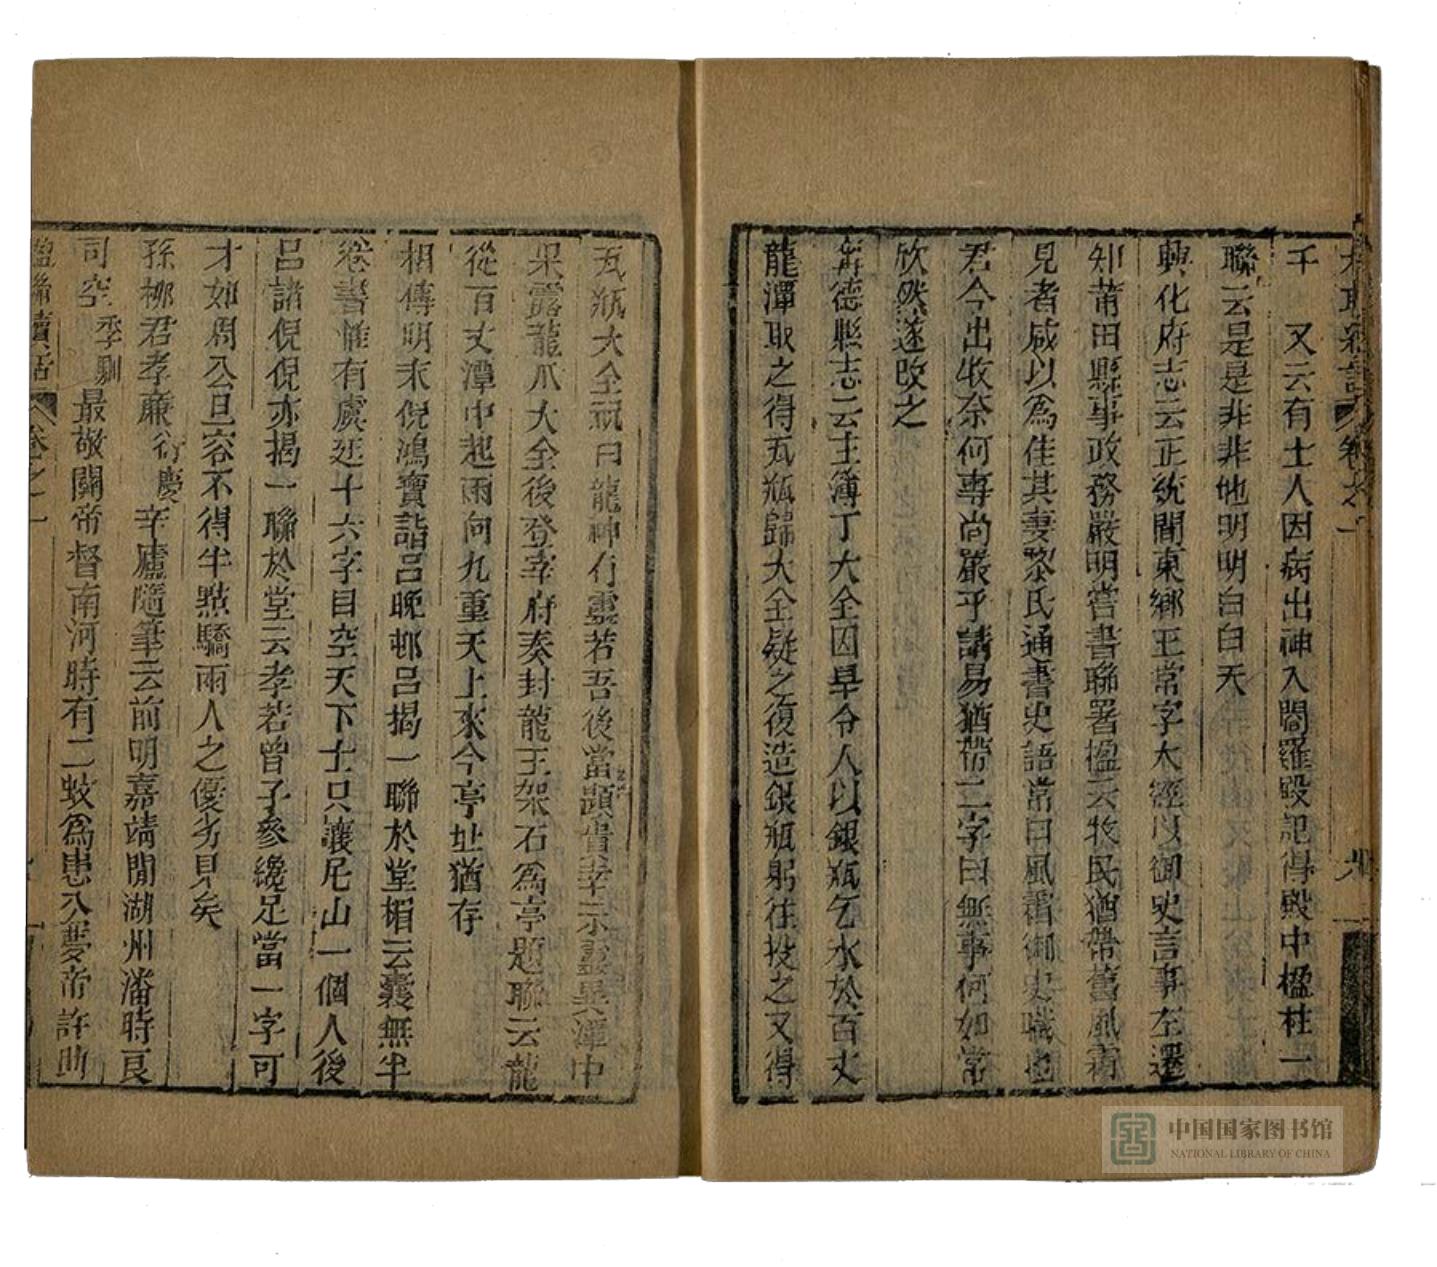 楹聯續話 卷之一
千　又云有士人因病出神入閻羅殿記得殿中楹柱一
聯云是是非非非他明明白白天
興化府志云正統間東鄉王常字大經以御史言事左遷
知莆田縣事政務嚴明嘗書聯署楹云牧民猶帶舊風霜
見者咸以為佳其妻黎氏通書史語常曰風霜御史職也
君今出收奈何專尚嚴乎請易猶帶二字曰無事何如常
欣然遂改之
德縣志云主簿丁大全因旱令人以銀瓶乞水於百丈
龍潭取之得瓦瓶歸大全疑之復造銀瓶躬往投之又得
瓦瓶大全祝曰龍神有靈若吾後當顯貴幸示靈異潭中
果露龍爪大全後登宰府奏封龍王架石為亭題聯云龍
從百丈潭中起雨向九重天上來今亭址猶存
相傳明末倪鴻寶詣呂晚邨呂揭一聯於堂楣云囊無半
卷書惟有虞廷十六字目空天下士只讓尼山一個人後
呂詣倪倪亦揭一聯於堂云孝若曾子參纔足當一字可
才如周公旦容不得半點驕兩人之優劣見矣
孫柳君孝廉衍慶辛廬隨筆云前明嘉靖間湖州潘時良
司空季馴最敬關帝督南河時有二蛟為患入夢帝許助
楹聯續話 卷之一
中国国家图书馆
NATIONAL LIBRARY OF CHINA